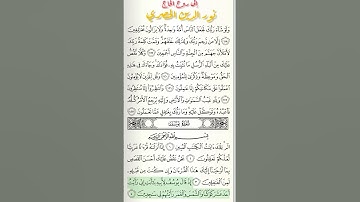 إلى روح الحاج
نور الدين
وَلَوْ شَاءَ رَبُّكَ لَجَعَلَ النَّاسَ أُمَّةً وَاحِدَةً وَلَا يَزَالُونَ مُخْتَلِفِينَ
١١٨ إِلَّا مَن رَّحِمَ رَبُّكَ وَلِذَٰلِكَ خَلَقَهُمْ وَتَمَّتْ كَلِمَةُ رَبِّكَ
لَأَمْلَأَنَّ جَهَنَّمَ مِنَ الْجِنَّةِ وَالنَّاسِ أَجْمَعِينَ ١١٩ وَكُلًّا نَّقُصُّ
عَلَيْكَ مِنْ أَنبَاءِ الرُّسُلِ مَا نُثَبِّتُ بِهِ فُؤَادَكَ وَجَاءَكَ فِي هَٰذِهِ
الْحَقُّ وَمَوْعِظَةٌ وَذِكْرَىٰ لِلْمُؤْمِنِينَ ١٢٠ وَقُل لِّلَّذِينَ لَا يُؤْمِنُونَ
اعْمَلُوا عَلَىٰ مَكَانَتِكُمْ إِنَّا عَامِلُونَ ١٢١ وَانتَظِرُوا إِنَّا مُنتَظِرُونَ ١٢٢
وَلِلَّهِ غَيْبُ السَّمَاوَاتِ وَالْأَرْضِ وَإِلَيْهِ يُرْجَعُ الْأَمْرُ كُلُّهُ
فَاعْبُدْهُ وَتَوَكَّلْ عَلَيْهِ وَمَا رَبُّكَ بِغَافِلٍ عَمَّا تَعْمَلُونَ ١٢٣
سُورَةُ يُوسُفَ
بِسْمِ اللَّهِ الرَّحْمَٰنِ الرَّحِيمِ
الر تِلْكَ آيَاتُ الْكِتَابِ الْمُبِينِ ١ إِنَّا أَنزَلْنَاهُ قُرْآنًا عَرَبِيًّا
لَّعَلَّكُمْ تَعْقِلُونَ ٢ نَحْنُ نَقُصُّ عَلَيْكَ أَحْسَنَ الْقَصَصِ
بِمَا أَوْحَيْنَا إِلَيْكَ هَٰذَا الْقُرْآنَ وَإِن كُنتَ مِن قَبْلِهِ
لَمِنَ الْغَافِلِينَ ٣ إِذْ قَالَ يُوسُفُ لِأَبِيهِ يَا أَبَتِ إِنِّي رَأَيْتُ
أَحَدَ عَشَرَ كَوْكَبًا وَالشَّمْسَ وَالْقَمَرَ رَأَيْتُهُمْ لِي سَاجِدِينَ ٤